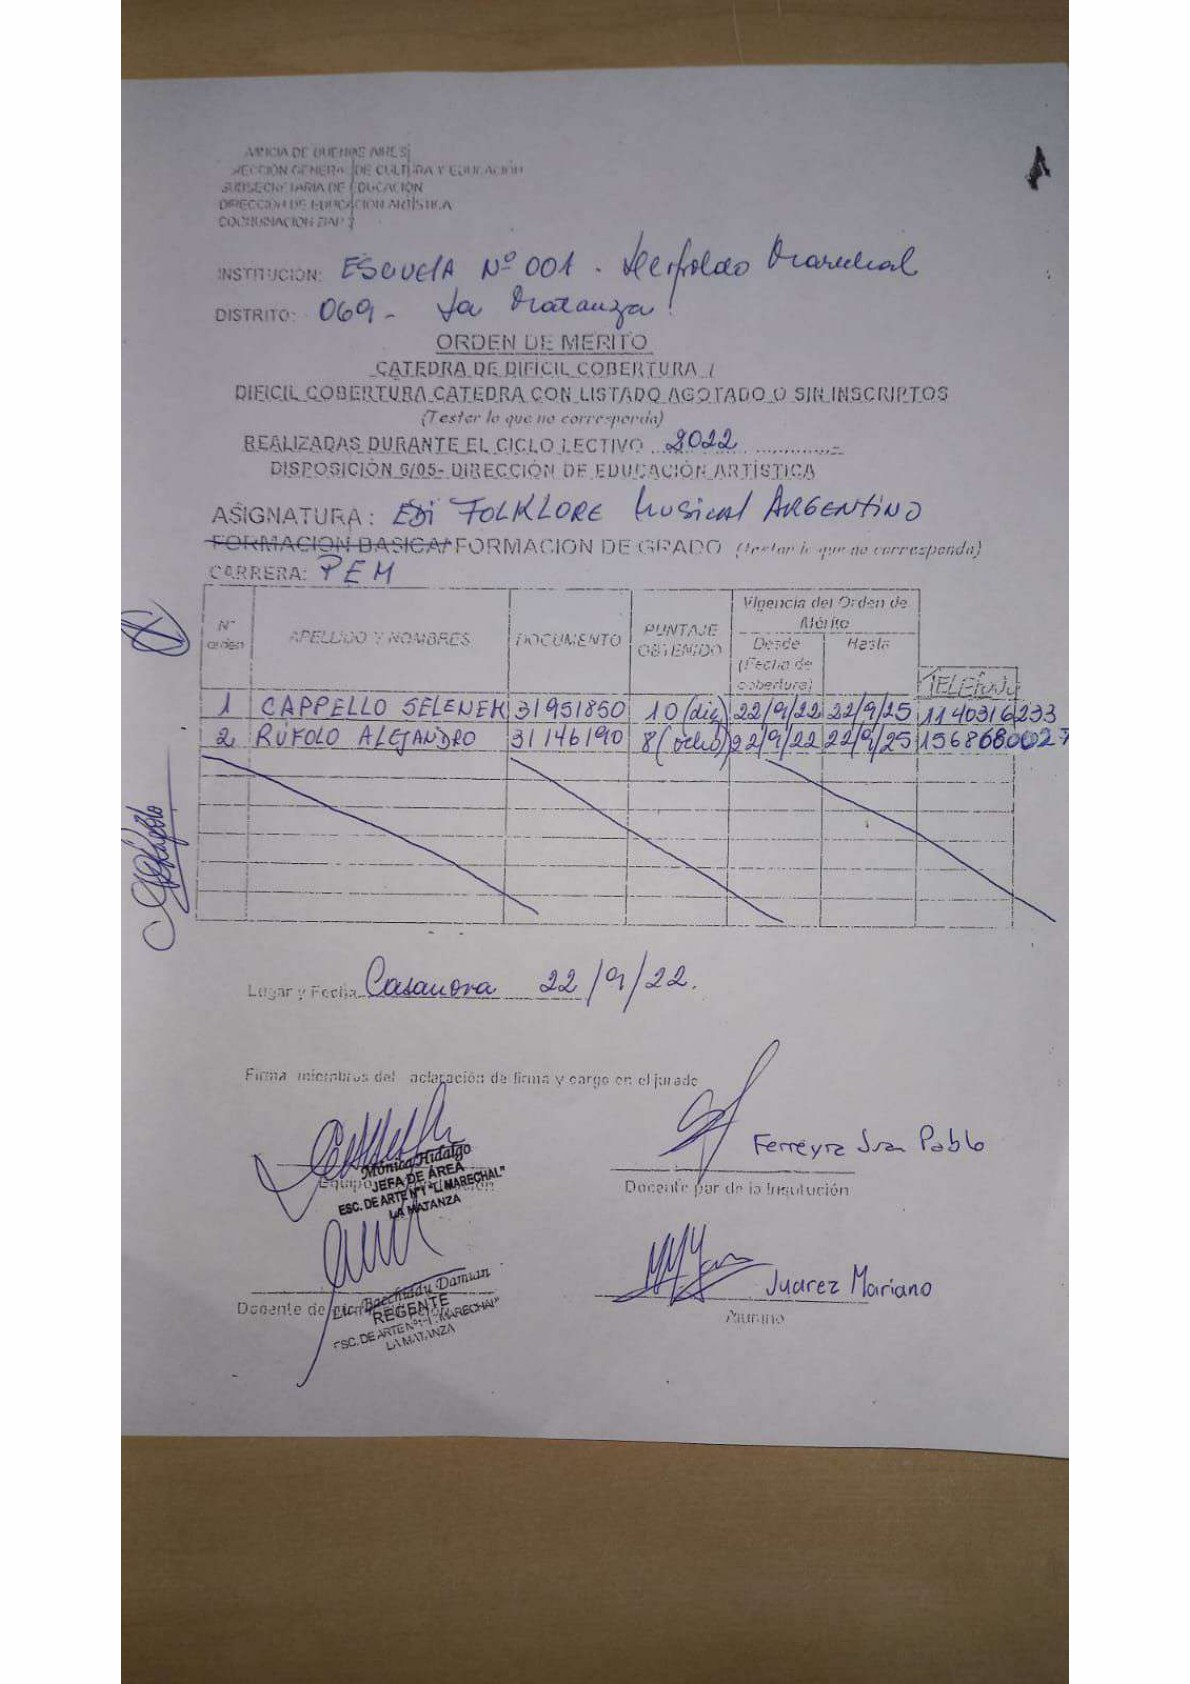 VINCIA DE BUENOS AIRES
RECCIÓN GENERAL DE CULTURA Y EDUCACIÓN
SUBSECRETARIA DE EDUCACIÓN
DIRECCIÓN DE EDUCACIÓN ARTÍSTICA
COORDINACION
INSTITUCIÓN: ESCUELA Nº 001 - Leopoldo Marechal
DISTRITO: 069 - La Matanza
ORDEN DE MERITO
CATEDRA DE DIFÍCIL COBERTURA /
DIFICIL COBERTURA CATEDRA CON LISTADO AGOTADO O SIN INSCRIPTOS
(Testar lo que no corresponda)
REALIZADAS DURANTE EL CICLO LECTIVO 2022
DISPOSICIÓN 6/05- DIRECCIÓN DE EDUCACIÓN ARTÍSTICA
ASIGNATURA: EDI FOLKLORE Musical ARGENTINO
FORMACION BASICA/ FORMACION DE GRADO (Testar lo que no corresponda)
CARRERA: PEM
Nº orden APELLIDO Y NOMBRES DOCUMENTO PUNTAJE OBTENIDO Vigencia del Orden de Mérito
Desde (Fecha de cobertura) Hasta TELEFONO
1 CAPPELLO SELENE 31951850 10 (diez) 22/9/22 22/9/25 1140316233
2 RÚFOLO ALEJANDRO 31146190 8 (ocho) 22/9/22 22/9/25 1568680027
Lugar y Fecha Casanova 22/9/22.
Firma miembros del aclaración de firma y cargo en el jurado
Mónica Hidalgo
JEFA DE ÁREA
ESC. DE ARTE Nº1 "L. MARECHAL"
LA MATANZA
Equipo
Ferreyra Ivan Pablo
Docente par de la Institución
Damian
REGENTE
ESC. DE ARTE Nº1 "L. MARECHAL"
LA MATANZA
Docente de
Juarez Mariano
Alumno